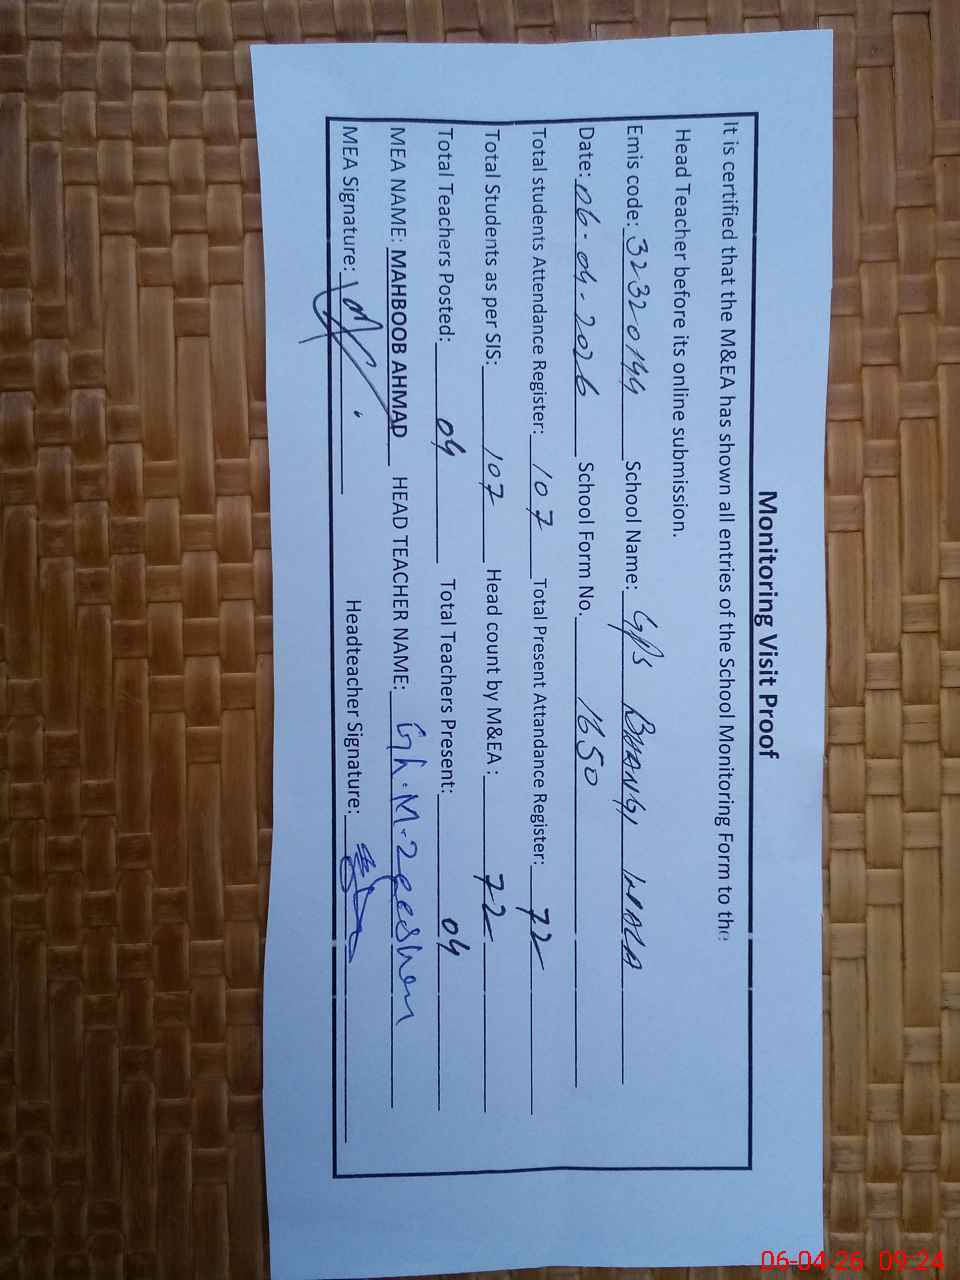 Monitoring Visit Proof
It is certified that the M&EA has shown all entries of the School Monitoring Form to the
Head Teacher before its online submission.
Emis code: 32320144 School Name: GPS BHANGI WALA
Date: 06-04-2026 School Form No. 1650
Total students Attendance Register: 107 Total Present Attandance Register: 72
Total Students as per SIS: 107 Head count by M&EA: 72
Total Teachers Posted: 04 Total Teachers Present: 04
MEA NAME: MAHBOOB AHMAD HEAD TEACHER NAME: Gh. M. Zeeshan
MEA Signature: Headteacher Signature:
06-04-26 09:24